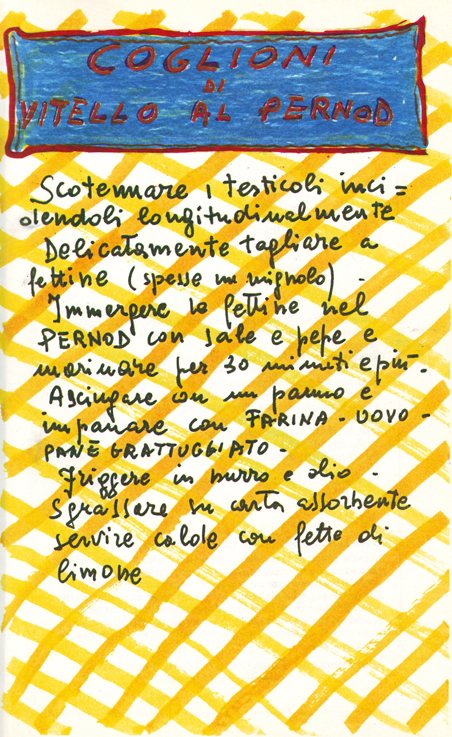 COGLIONI
DI
VITELLO AL PERNOD
Scotennare i testicoli inci=
dendoli longitudinalmente
Delicatamente tagliare a
fettine (spesse un mignolo) -
Immergere le fettine nel
PERNOD con sale e pepe e
marinare per 30 minuti e più -
Asciugare con un panno e
impanare con FARINA - UOVO -
PANE GRATTUGGIATO -
Friggere in burro e olio -
Sgrassare su carta assorbente
servire calde con fette di
limone